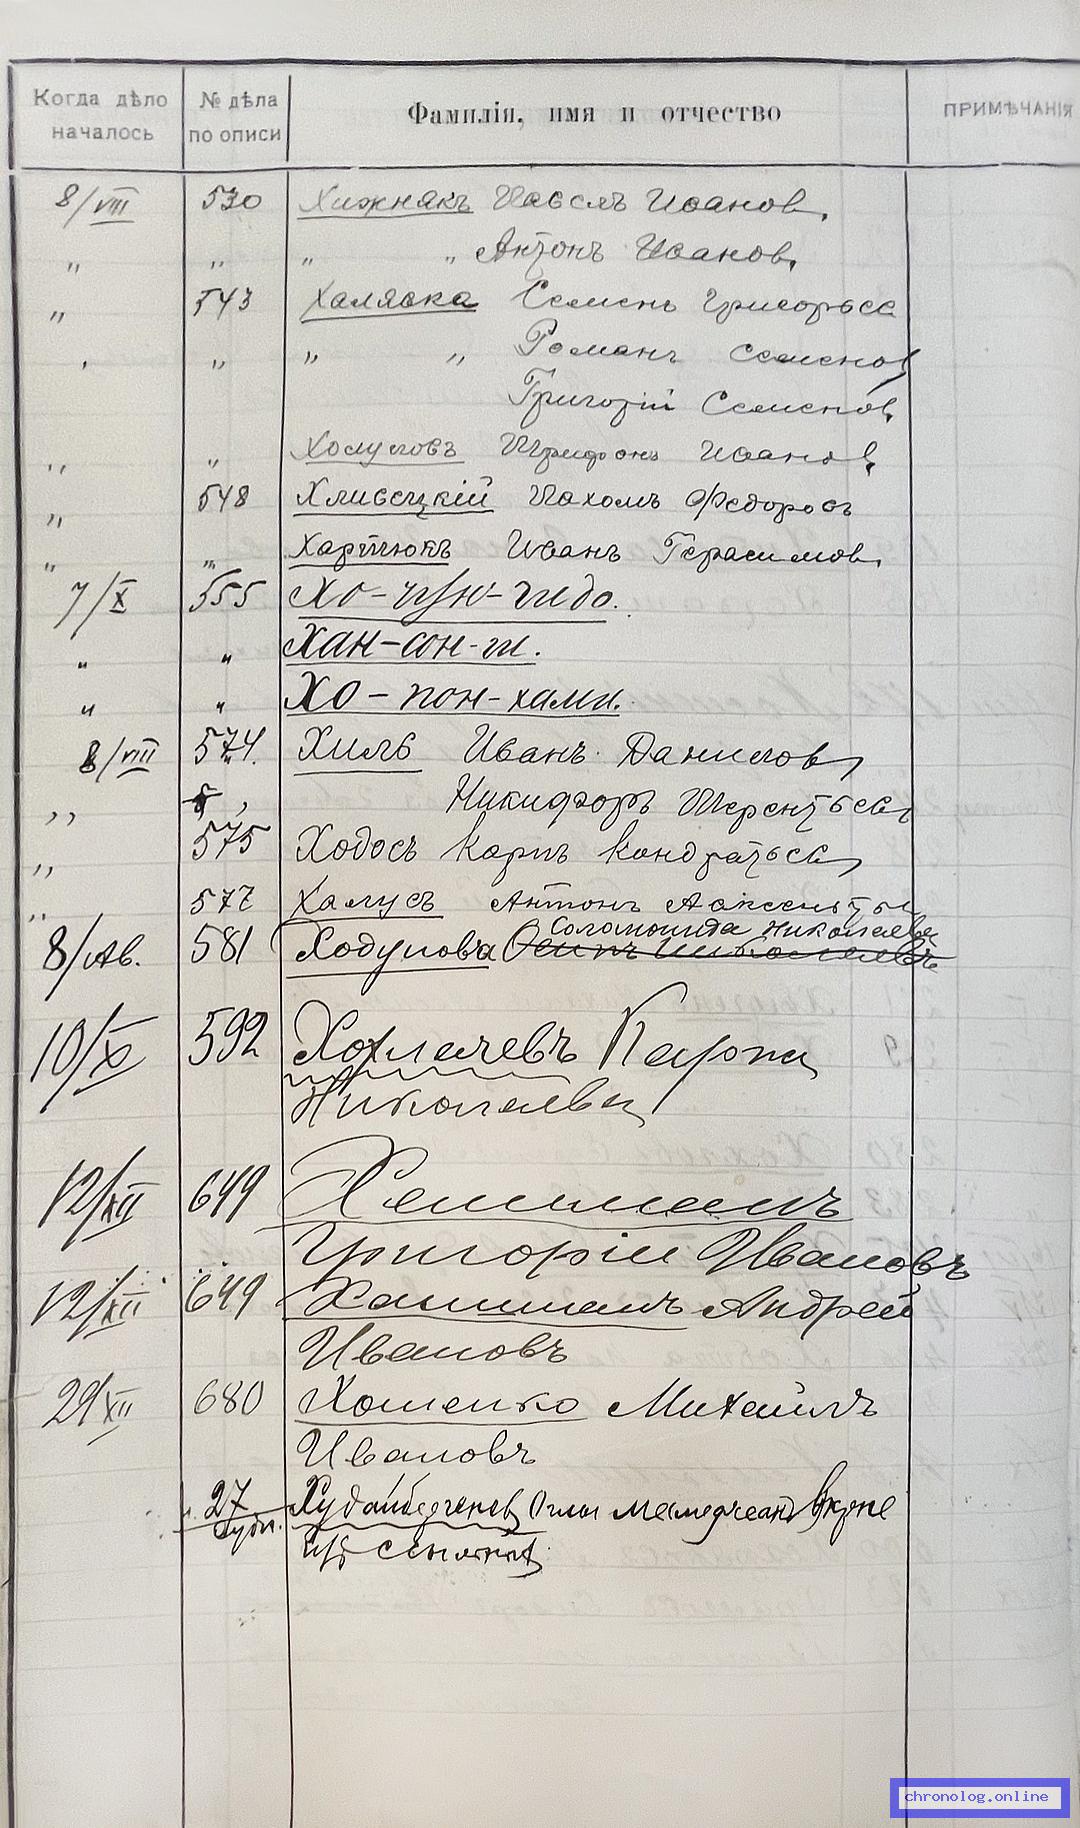 Когда дѣло началось
№ дѣла по описи
Фамилія, имя и отчество
ПРИМѢЧАНІЯ
8/VIII 530 Хижнякъ Павелъ Иванов,
„ „ „ „ Антонъ Иванов,
„ 543 Халявка Семенъ Григорьев
„ „ „ „ Романъ Семенов
Григорій Семенов,
„ „ Трифонъ Иванов,
„ 548 Хливецкій Пахомъ Федоровъ
„ „ Харитюкъ Иванъ Герасимов,
7/X 555 Хо-чун-гидо.
„ „ Хан-сон-ги.
„ „ Хо-пон-хами.
8/VIII 574. Хиль Иванъ Данилов,
„ Никифоръ Терентьев,
„ 575 Ходосъ Карпъ Кондратьев,
„ 577 Халусъ Антонъ Авксентьев
8/Ав. 581 Ходунова Соломонида Николаева
Осипъ Николаевъ
10/X 592 Карпъ
Николаевъ
12/XII 649
Григорій Ивановъ
12/XII 649 Андрей
Ивановъ
29/XII 680 Хоменко Михаилъ
Ивановъ
27
chronolog.online